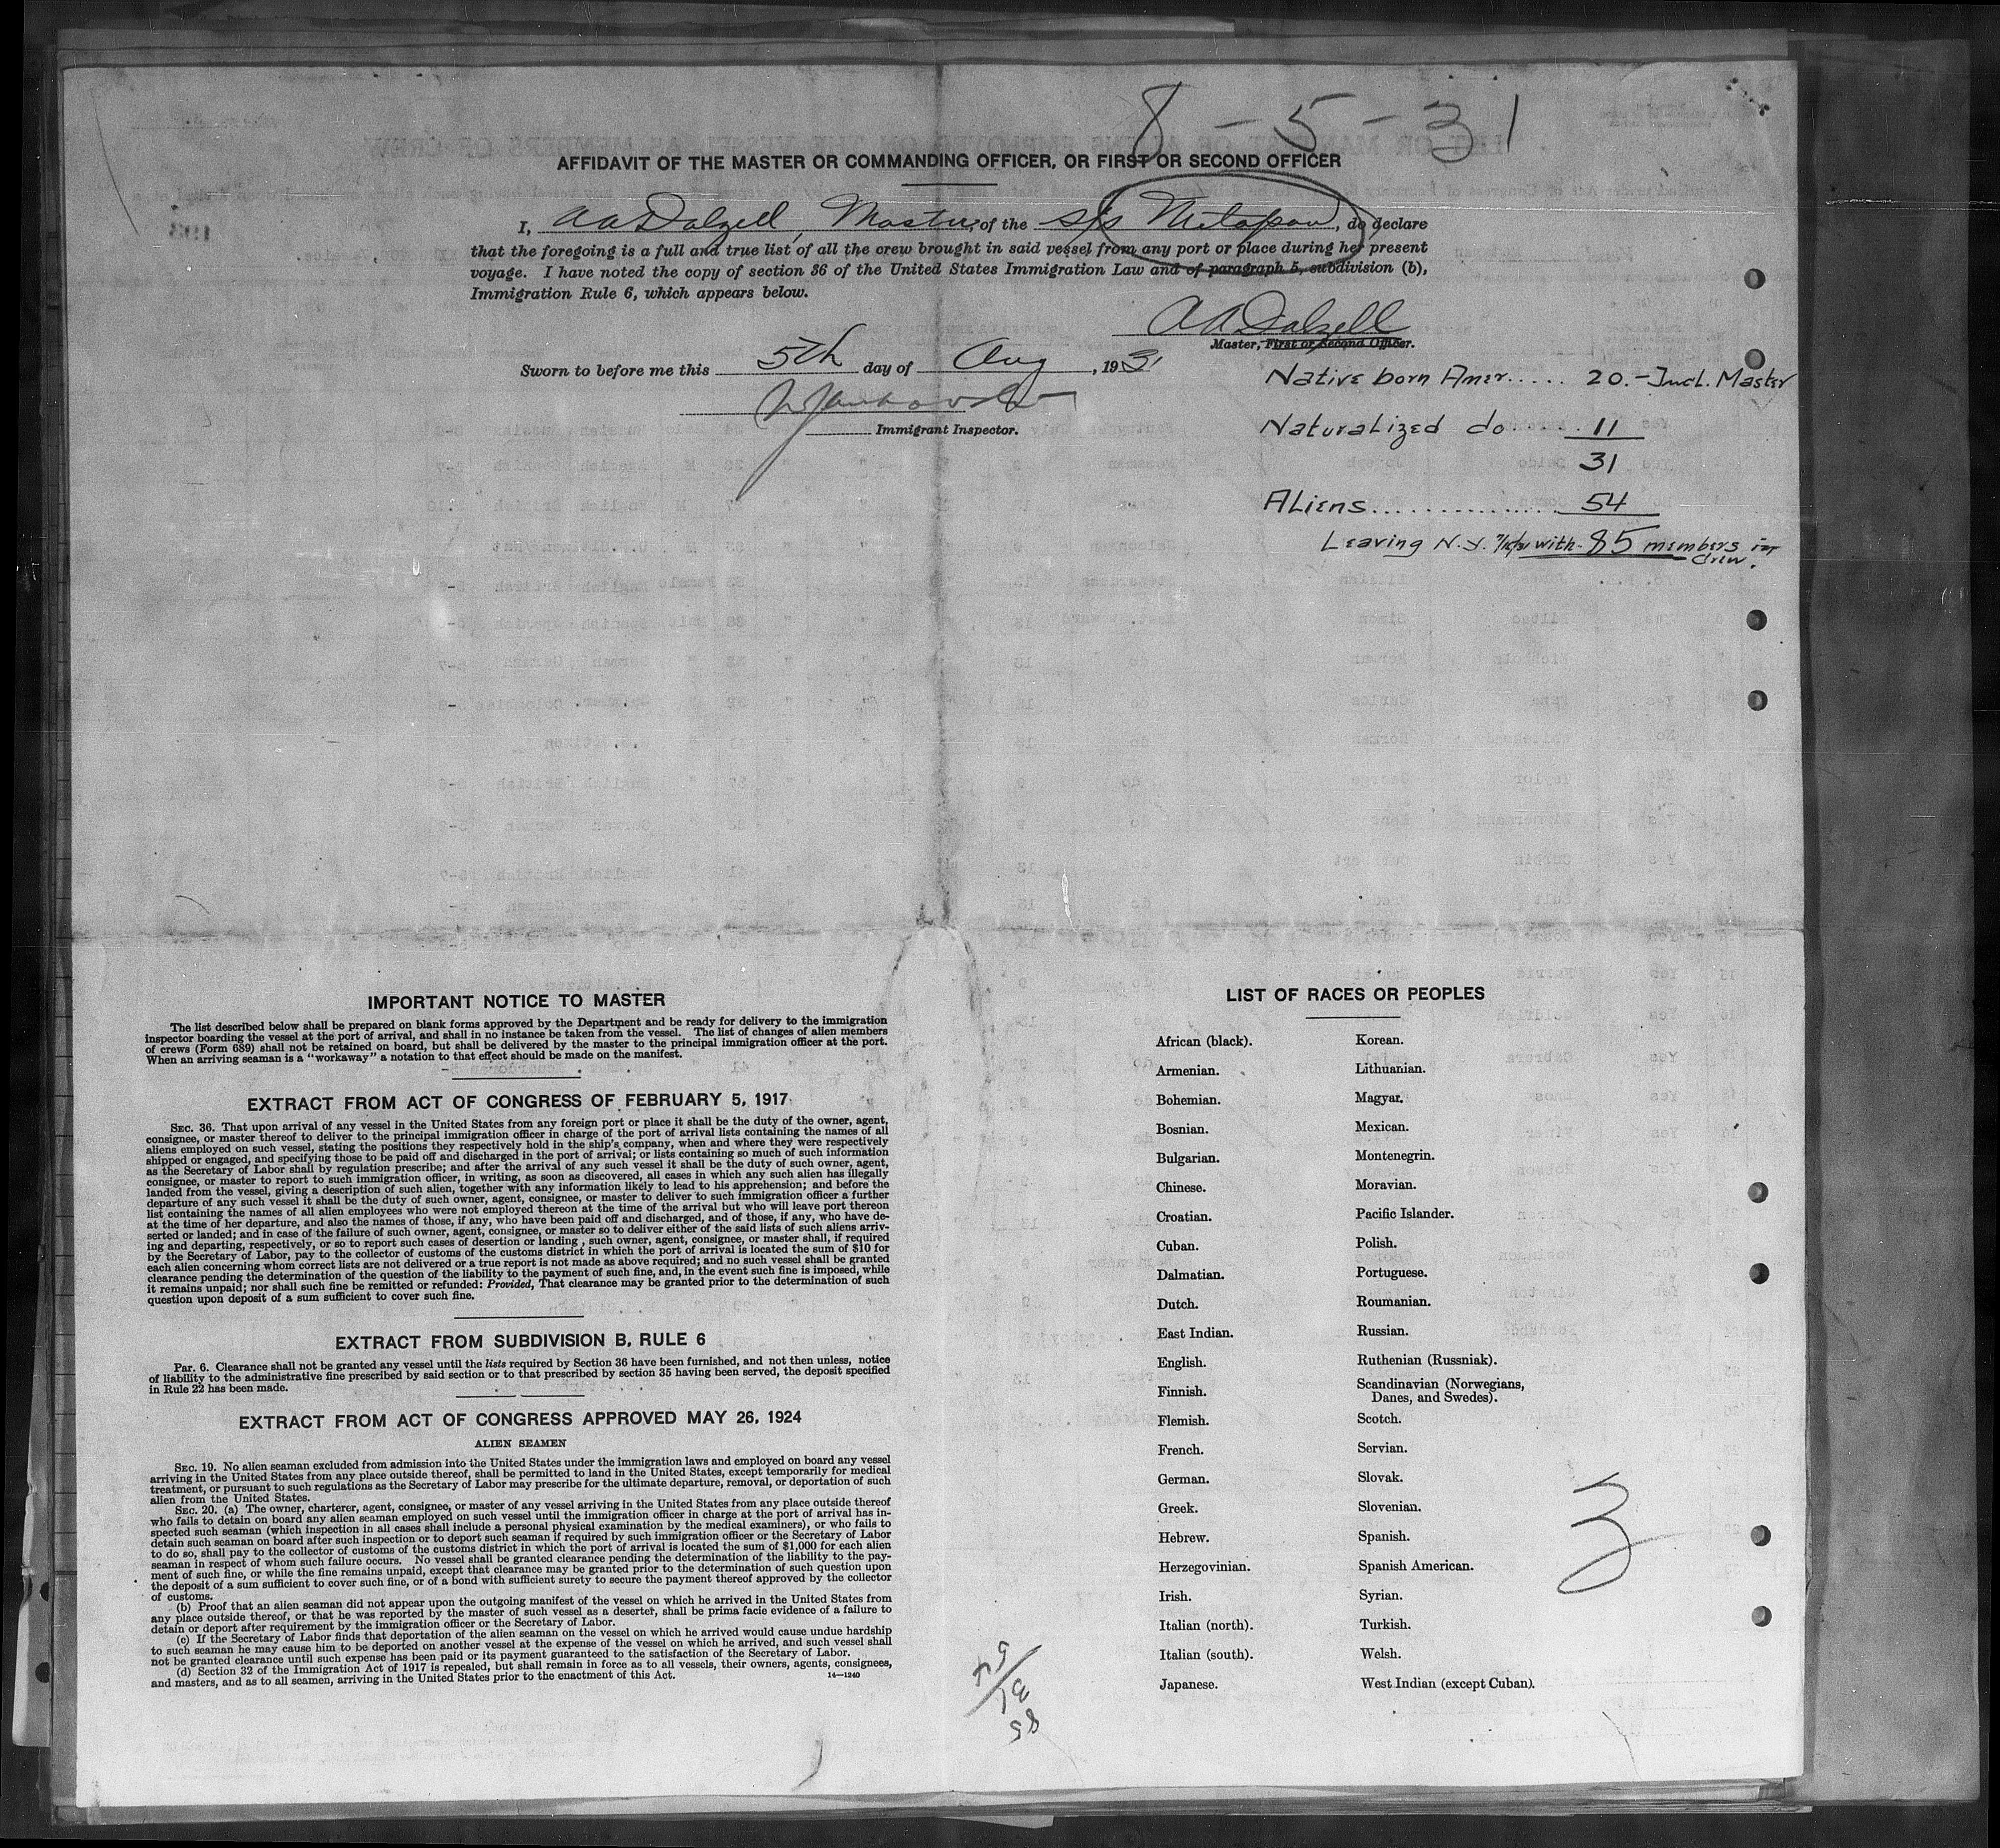 8-5-31
AFFIDAVIT OF THE MASTER OR COMMANDING OFFICER, OR FIRST OR SECOND OFFICER
I, AA Dalzell, Master, of the s/s Metapan, do declare
that the foregoing is a full and true list of all the crew brought in said vessel from any port or place during her present
voyage. I have noted the copy of section 36 of the United States Immigration Law and of paragraph 5, subdivision (b),
Immigration Rule 6, which appears below.
AA Dalzell
Master, First or Second Officer.
Sworn to before me this 5th day of Aug, 1931
Immigrant Inspector.
Native born Amer..... 20.-Incl. Master
Naturalized do..... 11
31
Aliens............... 54
Leaving N.Y. with 85 members in
crew.
IMPORTANT NOTICE TO MASTER
The list described below shall be prepared on blank forms approved by the Department and be ready for delivery to the immigration
inspector boarding the vessel at the port of arrival, and shall in no instance be taken from the vessel. The list of changes of alien members
of crews (Form 689) shall not be retained on board, but shall be delivered by the master to the principal immigration officer at the port.
When an arriving seaman is a "workaway" a notation to that effect should be made on the manifest.
EXTRACT FROM ACT OF CONGRESS OF FEBRUARY 5, 1917
SEC. 36. That upon arrival of any vessel in the United States from any foreign port or place it shall be the duty of the owner, agent,
consignee, or master thereof to deliver to the principal immigration officer in charge of the port of arrival lists containing the names of all
aliens employed on such vessel, stating the positions they respectively hold in the ship's company, when and where they were respectively
shipped or engaged, and specifying those to be paid off and discharged in the port of arrival; or lists containing so much of such information
as the Secretary of Labor shall by regulation prescribe; and after the arrival of any such vessel it shall be the duty of such owner, agent,
consignee, or master to report to such immigration officer, in writing, as soon as discovered, all cases in which any such alien has illegally
landed from the vessel, giving a description of such alien, together with any information likely to lead to his apprehension; and before the
departure of any such vessel it shall be the duty of such owner, agent, consignee, or master to deliver to such immigration officer a further
list containing the names of all alien employees who were not employed thereon at the time of the arrival but who will leave port thereon
at the time of her departure, and also the names of those, if any, who have been paid off and discharged, and of those, if any, who have de-
serted or landed; and in case of the failure of such owner, agent, consignee, or master so to deliver either of the said lists of such aliens arriv-
ing and departing, respectively, or so to report such cases of desertion or landing, such owner, agent, consignee, or master shall, if required
by the Secretary of Labor, pay to the collector of customs of the customs district in which the port of arrival is located the sum of $10 for
each alien concerning whom correct lists are not delivered or a true report is not made as above required; and no such vessel shall be granted
clearance pending the determination of the question of the liability to the payment of such fine, and, in the event such fine is imposed, while
it remains unpaid; nor shall such fine be remitted or refunded: Provided, That clearance may be granted prior to the determination of such
question upon deposit of a sum sufficient to cover such fine.
EXTRACT FROM SUBDIVISION B, RULE 6
Par. 6. Clearance shall not be granted any vessel until the lists required by Section 36 have been furnished, and not then unless, notice
of liability to the administrative fine prescribed by said section or to that prescribed by section 35 having been served, the deposit specified
in Rule 22 has been made.
EXTRACT FROM ACT OF CONGRESS APPROVED MAY 26, 1924
ALIEN SEAMEN
SEC. 19. No alien seaman excluded from admission into the United States under the immigration laws and employed on board any vessel
arriving in the United States from any place outside thereof, shall be permitted to land in the United States, except temporarily for medical
treatment, or pursuant to such regulations as the Secretary of Labor may prescribe for the ultimate departure, removal, or deportation of such
alien from the United States.
SEC. 20. (a) The owner, charterer, agent, consignee, or master of any vessel arriving in the United States from any place outside thereof
who fails to detain on board any alien seaman employed on such vessel until the immigration officer in charge at the port of arrival has in-
spected such seaman (which inspection in all cases shall include a personal physical examination by the medical examiners), or who fails to
detain such seaman on board after such inspection or to deport such seaman if required by such immigration officer or the Secretary of Labor
to do so, shall pay to the collector of customs of the customs district in which the port of arrival is located the sum of $1,000 for each alien
seaman in respect of whom such failure occurs. No vessel shall be granted clearance pending the determination of the liability to the pay-
ment of such fine, or while the fine remains unpaid, except that clearance may be granted prior to the determination of such question upon
the deposit of a sum sufficient to cover such fine, or of a bond with sufficient surety to secure the payment thereof approved by the collector
of customs.
(b) Proof that an alien seaman did not appear upon the outgoing manifest of the vessel on which he arrived in the United States from
any place outside thereof, or that he was reported by the master of such vessel as a deserter, shall be prima facie evidence of a failure to
detain or deport after requirement by the immigration officer or the Secretary of Labor.
(c) If the Secretary of Labor finds that deportation of the alien seaman on the vessel on which he arrived would cause undue hardship
to such seaman he may cause him to be deported on another vessel at the expense of the vessel on which he arrived, and such vessel shall
not be granted clearance until such expense has been paid or its payment guaranteed to the satisfaction of the Secretary of Labor.
(d) Section 32 of the Immigration Act of 1917 is repealed, but shall remain in force as to all vessels, their owners, agents, consignees,
and masters, and as to all seamen, arriving in the United States prior to the enactment of this Act. 14—1240
LIST OF RACES OR PEOPLES
African (black).
Armenian.
Bohemian.
Bosnian.
Bulgarian.
Chinese.
Croatian.
Cuban.
Dalmatian.
Dutch.
East Indian.
English.
Finnish.
Flemish.
French.
German.
Greek.
Hebrew.
Herzegovinian.
Irish.
Italian (north).
Italian (south).
Japanese.
Korean.
Lithuanian.
Magyar.
Mexican.
Montenegrin.
Moravian.
Pacific Islander.
Polish.
Portuguese.
Roumanian.
Russian.
Ruthenian (Russniak).
Scandinavian (Norwegians,
Danes, and Swedes).
Scotch.
Servian.
Slovak.
Slovenian.
Spanish.
Spanish American.
Syrian.
Turkish.
Welsh.
West Indian (except Cuban).
3
54
31
85